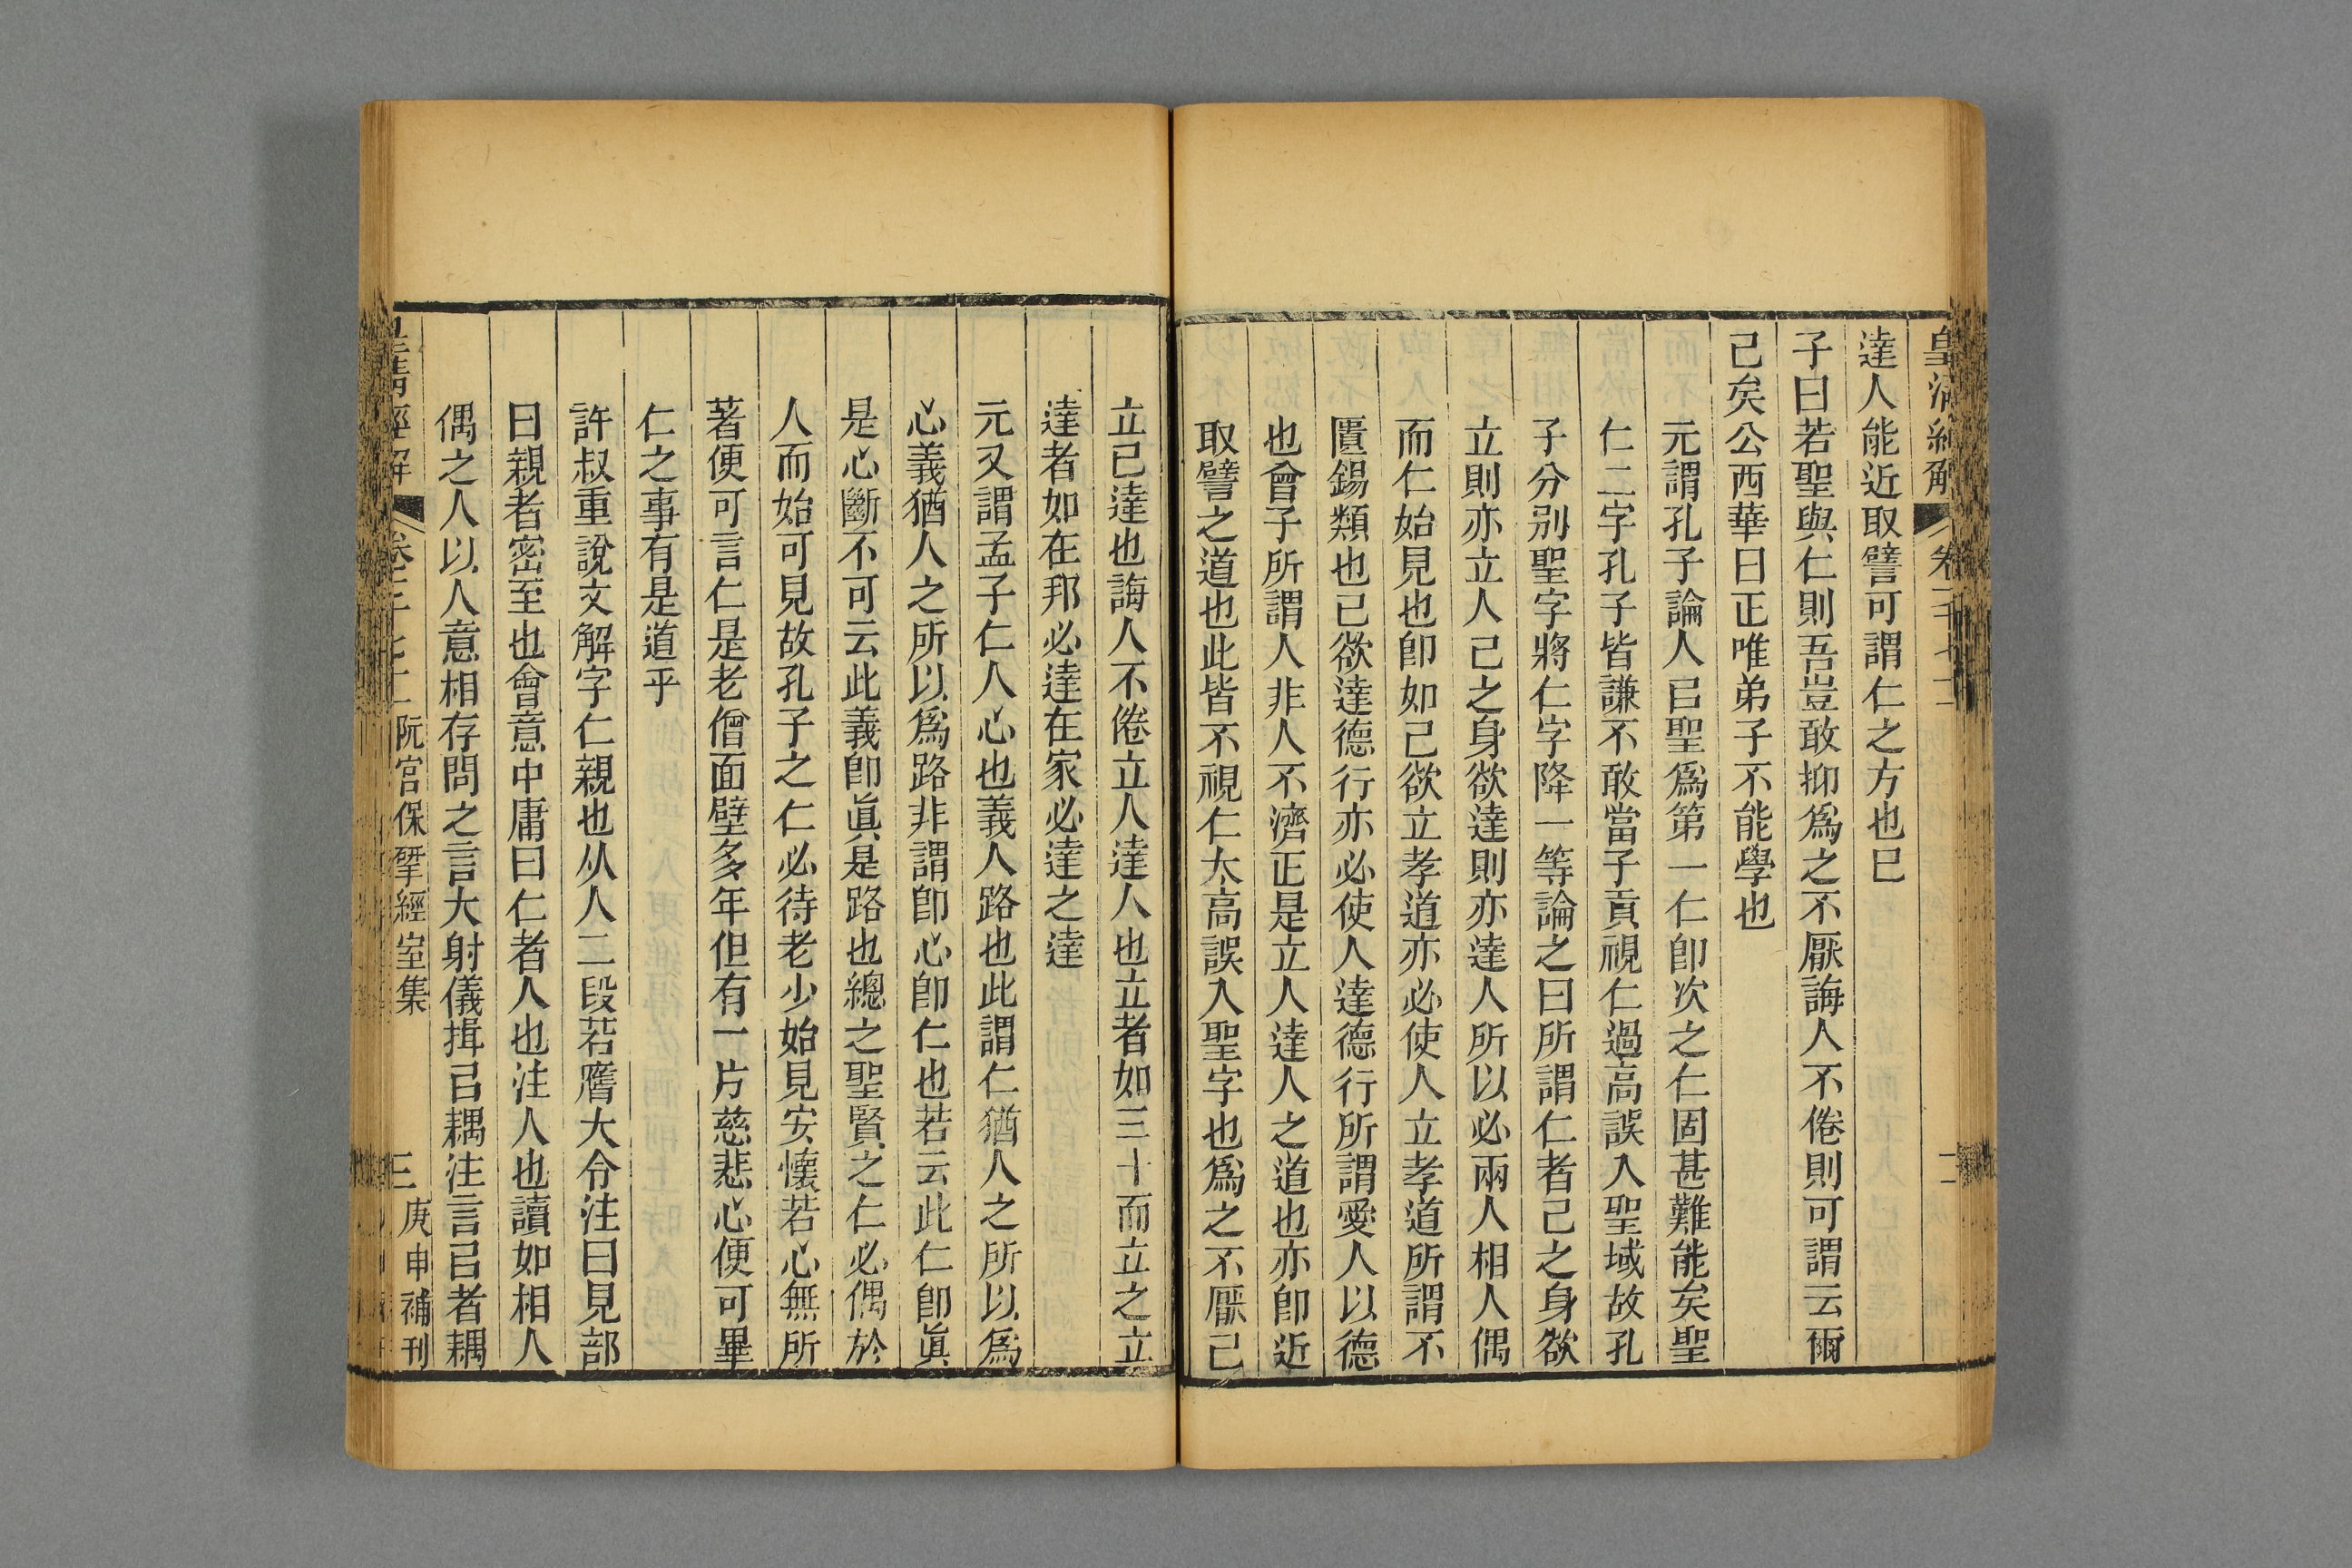 皇清經解 卷一千七十一 二
達人能近取譬可謂仁之方也已
子曰若聖與仁則吾豈敢抑爲之不厭誨人不倦則可謂云爾
已矣公西華曰正唯弟子不能學也
元謂孔子論人㠯聖爲第一仁卽次之仁固甚難能矣聖
仁二字孔子皆謙不敢當子貢視仁過高誤入聖域故孔
子分別聖字將仁字降一等論之曰所謂仁者己之身欲
立則亦立人己之身欲達則亦達人所以必兩人相人偶
而仁始見也卽如己欲立孝道亦必使人立孝道所謂不
匱錫類也己欲達德行亦必使人達德行所謂愛人以德
也曾子所謂人非人不濟正是立人達人之道也亦卽近
取譬之道也此皆不視仁太高誤入聖字也爲之不厭己
立己達也誨人不倦立人達人也立者如三十而立之立
達者如在邦必達在家必達之達
元又謂孟子仁人心也義人路也此謂仁猶人之所以爲
心義猶人之所以爲路非謂卽心卽仁也若云此仁卽眞
是心斷不可云此義卽眞是路也總之聖賢之仁必偶於
人而始可見故孔子之仁必待老少始見安懷若心無所
著便可言仁是老僧面壁多年但有一片慈悲心便可畢
仁之事有是道乎
許叔重說文解字仁親也从人二段若膺大令注曰見部
曰親者密至也會意中庸曰仁者人也注人也讀如相人
偶之人以人意相存問之言大射儀揖㠯耦注言㠯者耦
皇清經解 卷一千七十一 阮宮保揅經室集 三 庚申補刊